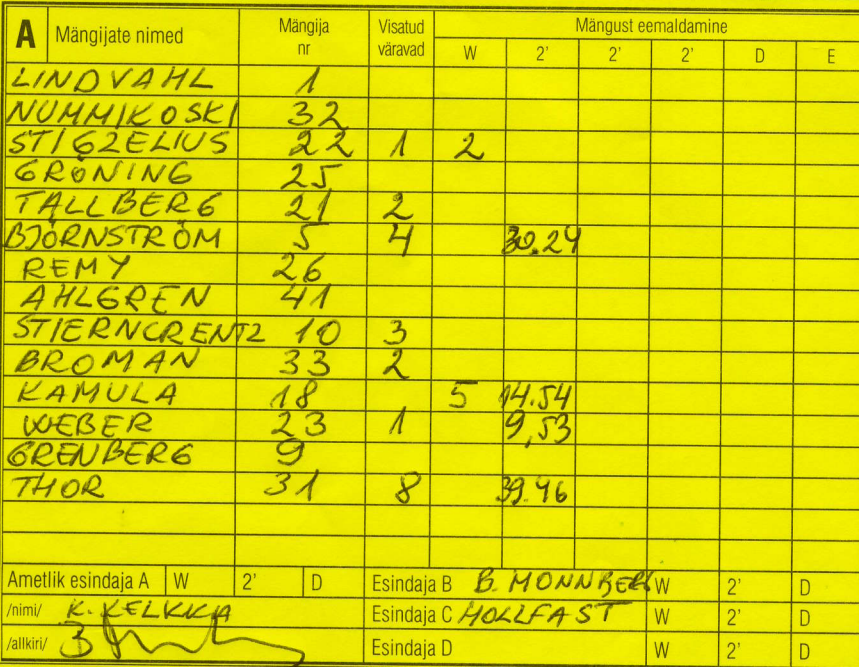 A Mängijate nimed Mängija nr Visatud väravad Mängust eemaldamine
W 2' 2' 2' D E
LINDVAHL 1
NUMMIKOSKI 32
STIGZELIUS 22 1 2
GRÖNING 25
TALLBERG 21 2
BJÖRNSTRÖM 5 4 30.24
REMY 26
AHLGREN 41
STIERNCRENTZ 10 3
BROMAN 33 2
KAMULA 18 5 14.54
WEBER 23 1 9,53
GRENBERG 9
THOR 31 8 39.46
Ametlik esindaja A W 2' D Esindaja B B. MONNBERG W 2' D
/nimi/ K. KELKKJA Esindaja C HOLLFAST W 2' D
/allkiri/ Esindaja D W 2' D